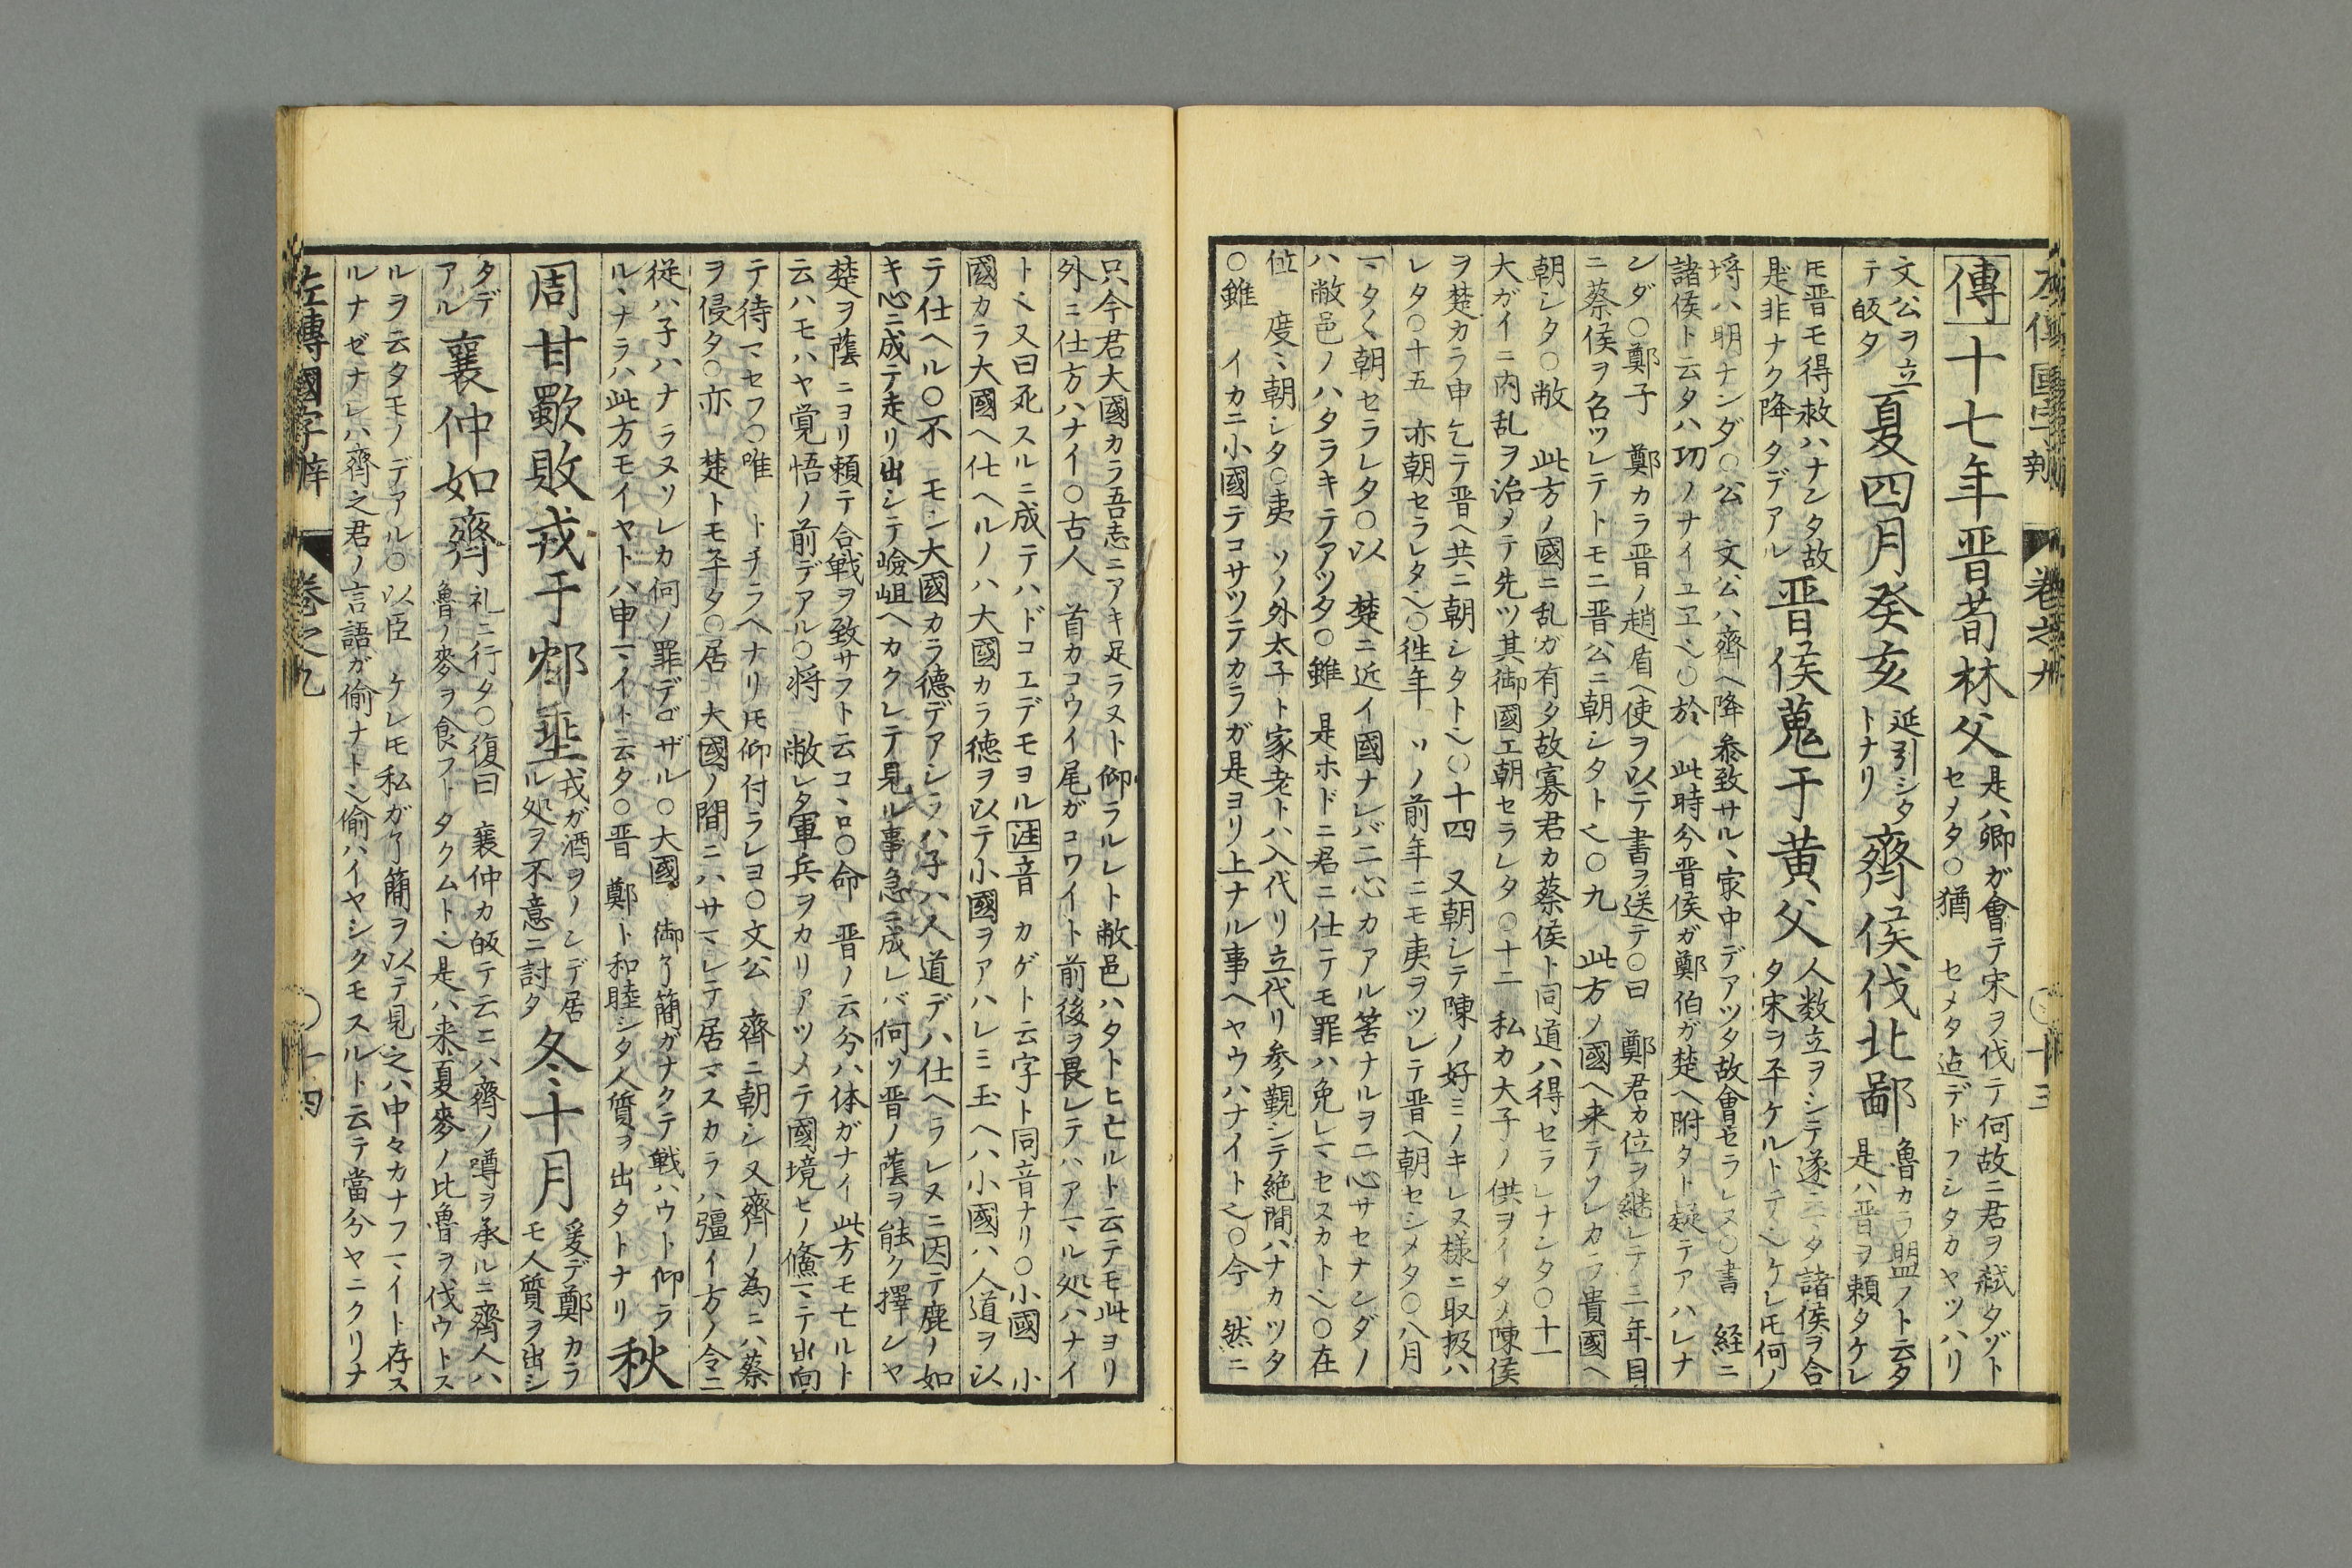 傳 十七年晋荀林父 是ハ卿ガ會テ宋ヲ伐テ何故ニ君ヲ弑タゾト
セメタ○猶 セメタ迠デドフシタカヤツハリ
文公ヲ立
テ皈タ 夏四月癸亥 延引シタ
トナリ 齊侯伐北鄙 魯カラ盟ノト云タ
是ハ晋ヲ頼タケレ
𪜈晋モ得救ハナンタ故
是非ナク降タデアル 晋侯蒐于黄父 人数立ヲシテ遂ニ〻タ諸侯ヲ合
タ宋ヲ平ケルトテ〻ケレ𪜈何ノ
埒ハ明ナンダ○公 文公ハ齊ヘ降参致サル丶家中デアツタ故會セラレヌ○書 経ニ
諸侯ト云タハ功ノナイユヱ〻○於 此時分晋侯ガ鄭伯ガ楚ヘ附タト疑テアハレナ
ンダ○鄭子 鄭カラ晋ノ趙盾ヘ使ヲ以テ書ヲ送テ○曰 鄭君カ位ヲ継レテ三年目
ニ蔡侯ヲ名ツレテトモニ晋公ニ朝シタト〻○九 此方ノ國ヘ来テソレカラ貴國ヘ
朝シタ○敝 此方ノ國ニ乱ガ有タ故寡君カ蔡侯ト同道ハ得セラレナンタ○十一
大ガイニ内乱ヲ治メテ先ツ其御國エ朝セラレタ○十二 私カ大子ノ供ヲイタメ陳侯
ヲ楚カラ申乞テ晋ヘ共ニ朝シタト〻○十四 又朝シテ陳ノ好ミノキレヌ様ニ取扱ハ
レタ○十五 亦朝セラレタ〻○徃年 ソノ前年ニモ夷ヲツレテ晋ヘ朝セシメタ○八月
マタ〱朝セラレタ○以 楚ニ近イ國ナレバ二心カアル筈ナルヲ二心サセナンダノ
ハ敝邑ノハタラキテアツタ○雖 是ホドニ君ニ仕テモ罪ハ免レマセヌカト〻○在
位 度〻朝シタ○夷 ソノ外太子ト家老トハ入代リ立代リ参覲シテ絶間ハナカツタ
○雖 イカニ小國テコサツテカラガ是ヨリ上ナル事ヘヤウハナイト〻○今 然ニ
巻之九
十三
只今君大國カラ吾志ニアキ足ラヌト仰ラルレト敝邑ハタトヒ亡ルト云テモ此ヨリ
外ニ仕方ハナイ○古人 首カコウイ尾ガコワイト前後ヲ畏レテハアマル処ハナイ
ト〻又曰死スルニ成テハドコエデモヨル 注 音 カゲト云字ト同音ナリ○小國 小
國カラ大國ヘ仕ヘルノハ大國カラ徳ヲ以テ小國ヲアハレミ玉ヘハ小國ハ人道ヲ以
テ仕ヘル○不 モシ大國カラ德デアシラハ子ハ人道デハ仕ヘラレヌニ因テ鹿ノ如
キ心ニ成テ走リ出シテ嶮岨ヘカクレテ見ル事急ニ成レバ何ソ晋ノ蔭ヲ能ク擇シヤ
楚ヲ蔭ニヨリ頼テ合戦ヲ致サフト云コヽロ○命 晋ノ云分ハ体ガナイ此方モ亡ルト
云ハモハヤ覚悟ノ前デアル○将 敝レタ軍兵ヲカリアツメテ國境セノ鯈マテ出向
テ待マセフ○唯 トチラヘナリ𪜈仰付ラレヨ○文公 齊ニ朝シ又齊ノ為ニハ蔡
ヲ侵タ○亦 楚トモ平タ○居 大國ノ間ニハサマレテ居マスカラハ彊イ方ノ令ニ
従ハ子ハナラヌソレカ何ノ罪デゴザル○大國 御了簡ガナクテ戦ハウト仰ラ
ル丶ナラハ此方モイヤトハ申マイト云タ○晋 鄭ト和睦シタ人質ヲ出タトナリ 秋
周甘歜敗戎于邥垂 戎ガ酒ヲノンデ居
ル処ヲ不意ニ討タ 冬十月 爰デ鄭カラ
モ人質ヲ出シ
タデ
アル 襄仲如齊 礼ニ行タ○復曰 襄仲カ皈テ云ニハ齊ノ噂ヲ承ルニ齊人ハ
魯ノ麥ヲ食フトタクムト〻是ハ来夏麥ノ比魯ヲ伐ウトス
ルヲ云タモノデアル○以臣 ケレ𪜈私ガ了簡ヲ以テ見之ハ中々カナフマイト存ス
ルナゼナレハ齊之君ノ言語ガ偷ナト〻偷ハイヤシクモスルト云テ當分ヤニクリナ
左傳國字辨
巻之九
十四